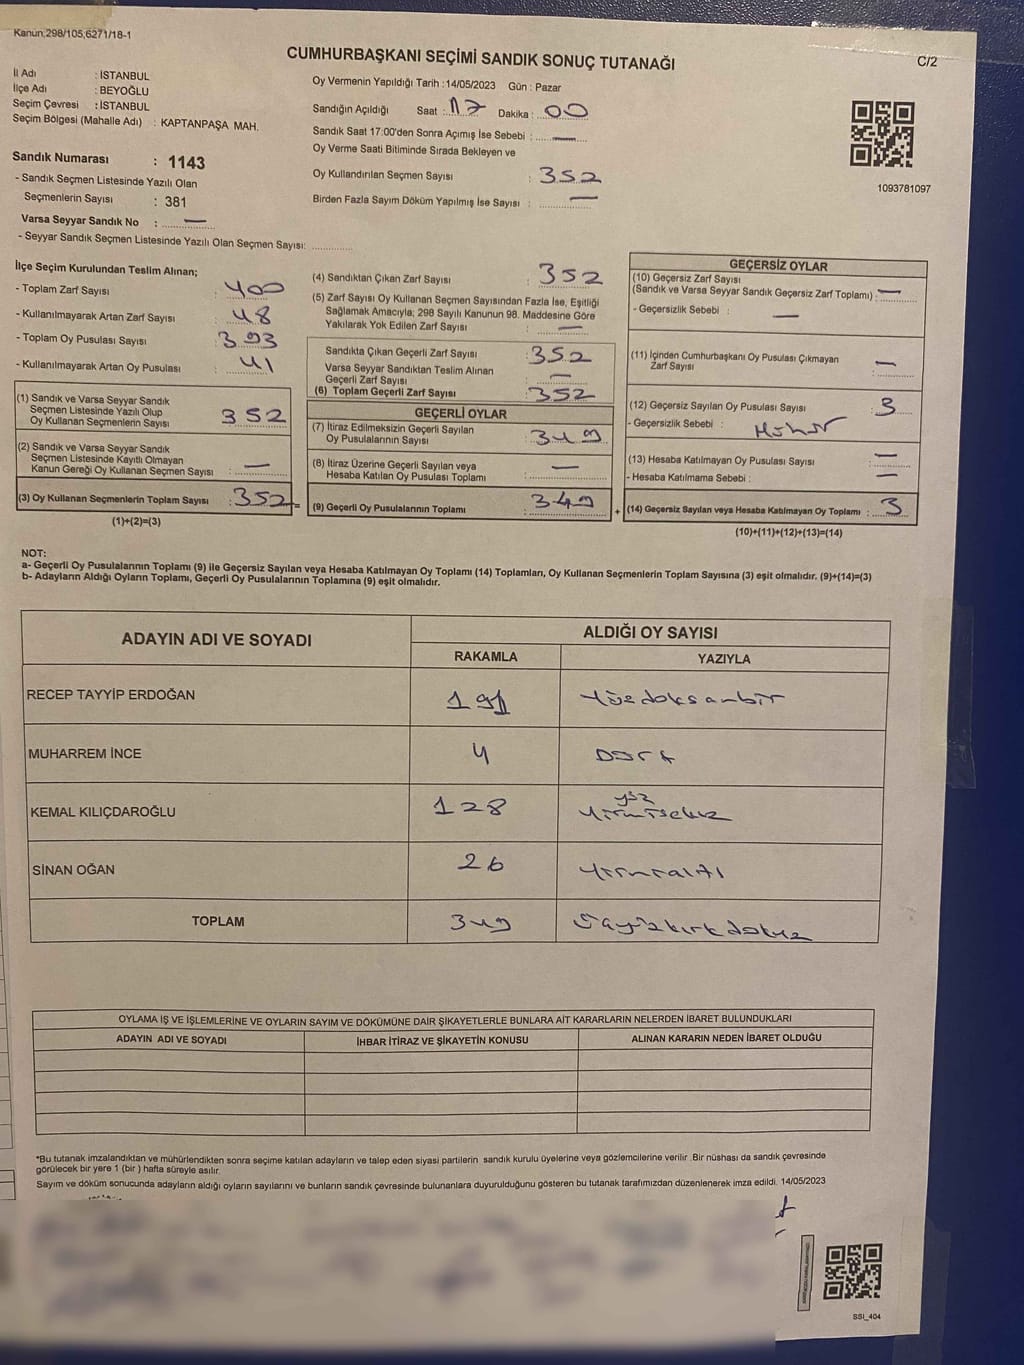 Kanun;298/105,6271/18-1
CUMHURBAŞKANI SEÇİMİ SANDIK SONUÇ TUTANAĞI
C/2
İl Adı : İSTANBUL
İlçe Adı : BEYOĞLU
Seçim Çevresi : İSTANBUL
Seçim Bölgesi (Mahalle Adı) : KAPTANPAŞA MAH.
Sandık Numarası : 1143
- Sandık Seçmen Listesinde Yazılı Olan
Seçmenlerin Sayısı : 381
Varsa Seyyar Sandık No : —
- Seyyar Sandık Seçmen Listesinde Yazılı Olan Seçmen Sayısı:
Oy Vermenin Yapıldığı Tarih :14/05/2023 Gün : Pazar
Sandığın Açıldığı Saat : 17 Dakika : 00
Sandık Saat 17:00'den Sonra Açımış İse Sebebi : —
Oy Verme Saati Bitiminde Sırada Bekleyen ve
Oy Kullandırılan Seçmen Sayısı : 352
Birden Fazla Sayım Döküm Yapılmış İse Sayısı : —
1093781097
İlçe Seçim Kurulundan Teslim Alınan;
- Toplam Zarf Sayısı : 400
- Kullanılmayarak Artan Zarf Sayısı : 48
- Toplam Oy Pusulası Sayısı : 393
- Kullanılmayarak Artan Oy Pusulası : 41
(1) Sandık ve Varsa Seyyar Sandık
Seçmen Listesinde Yazılı Olup
Oy Kullanan Seçmenlerin Sayısı : 352
(2) Sandık ve Varsa Seyyar Sandık
Seçmen Listesinde Kayıtlı Olmayan
Kanun Gereği Oy Kullanan Seçmen Sayısı : —
(3) Oy Kullanan Seçmenlerin Toplam Sayısı : 352 =
(1)+(2)=(3)
(4) Sandıktan Çıkan Zarf Sayısı : 352
(5) Zarf Sayısı Oy Kullanan Seçmen Sayısından Fazla İse, Eşitliği
Sağlamak Amacıyla; 298 Sayılı Kanunun 98. Maddesine Göre
Yakılarak Yok Edilen Zarf Sayısı : —
Sandıkta Çıkan Geçerli Zarf Sayısı : 352
Varsa Seyyar Sandıktan Teslim Alınan
Geçerli Zarf Sayısı : —
(6) Toplam Geçerli Zarf Sayısı : 352
GEÇERLİ OYLAR
(7) İtiraz Edilmeksizin Geçerli Sayılan
Oy Pusulalarının Sayısı : 349
(8) İtiraz Üzerine Geçerli Sayılan veya
Hesaba Katılan Oy Pusulası Toplamı : —
(9) Geçerli Oy Pusulalarının Toplamı : 349 +
GEÇERSİZ OYLAR
(10) Geçersiz Zarf Sayısı
(Sandık ve Varsa Seyyar Sandık Geçersiz Zarf Toplamı) : —
- Geçersizlik Sebebi : —
(11) İçinden Cumhurbaşkanı Oy Pusulası Çıkmayan
Zarf Sayısı : —
(12) Geçersiz Sayılan Oy Pusulası Sayısı : 3
- Geçersizlik Sebebi : Mühür
(13) Hesaba Katılmayan Oy Pusulası Sayısı : —
- Hesaba Katılmama Sebebi : —
(14) Geçersiz Sayılan veya Hesaba Katılmayan Oy Toplamı : 3
(10)+(11)+(12)+(13)=(14)
NOT:
a- Geçerli Oy Pusulalarının Toplamı (9) ile Geçersiz Sayılan veya Hesaba Katılmayan Oy Toplamı (14) Toplamları, Oy Kullanan Seçmenlerin Toplam Sayısına (3) eşit olmalıdır. (9)+(14)=(3)
b- Adayların Aldığı Oyların Toplamı, Geçerli Oy Pusulalarının Toplamına (9) eşit olmalıdır.
ADAYIN ADI VE SOYADI ALDIĞI OY SAYISI
RAKAMLA YAZIYLA
RECEP TAYYİP ERDOĞAN 191 Yüzdoksanbir
MUHARREM İNCE 4 Dört
KEMAL KILIÇDAROĞLU 128 yüz Yirmisekiz
SİNAN OĞAN 26 Yirmialtı
TOPLAM 349 Üçyüzkırkdokuz
OYLAMA İŞ VE İŞLEMLERİNE VE OYLARIN SAYIM VE DÖKÜMÜNE DAİR ŞİKAYETLERLE BUNLARA AİT KARARLARIN NELERDEN İBARET BULUNDUKLARI
ADAYIN ADI VE SOYADI İHBAR İTİRAZ VE ŞİKAYETİN KONUSU ALINAN KARARIN NEDEN İBARET OLDUĞU
*Bu tutanak imzalandıktan ve mühürlendikten sonra seçime katılan adayların ve talep eden siyasi partilerin sandık kurulu üyelerine veya gözlemcilerine verilir .Bir nüshası da sandık çevresinde
görülecek bir yere 1 (bir ) hafta süreyle asılır.
Sayım ve döküm sonucunda adayların aldığı oyların sayılarını ve bunların sandık çevresinde bulunanlara duyurulduğunu gösteren bu tutanak tarafımızdan düzenlenerek imza edildi. 14/05/2023
SSI_404